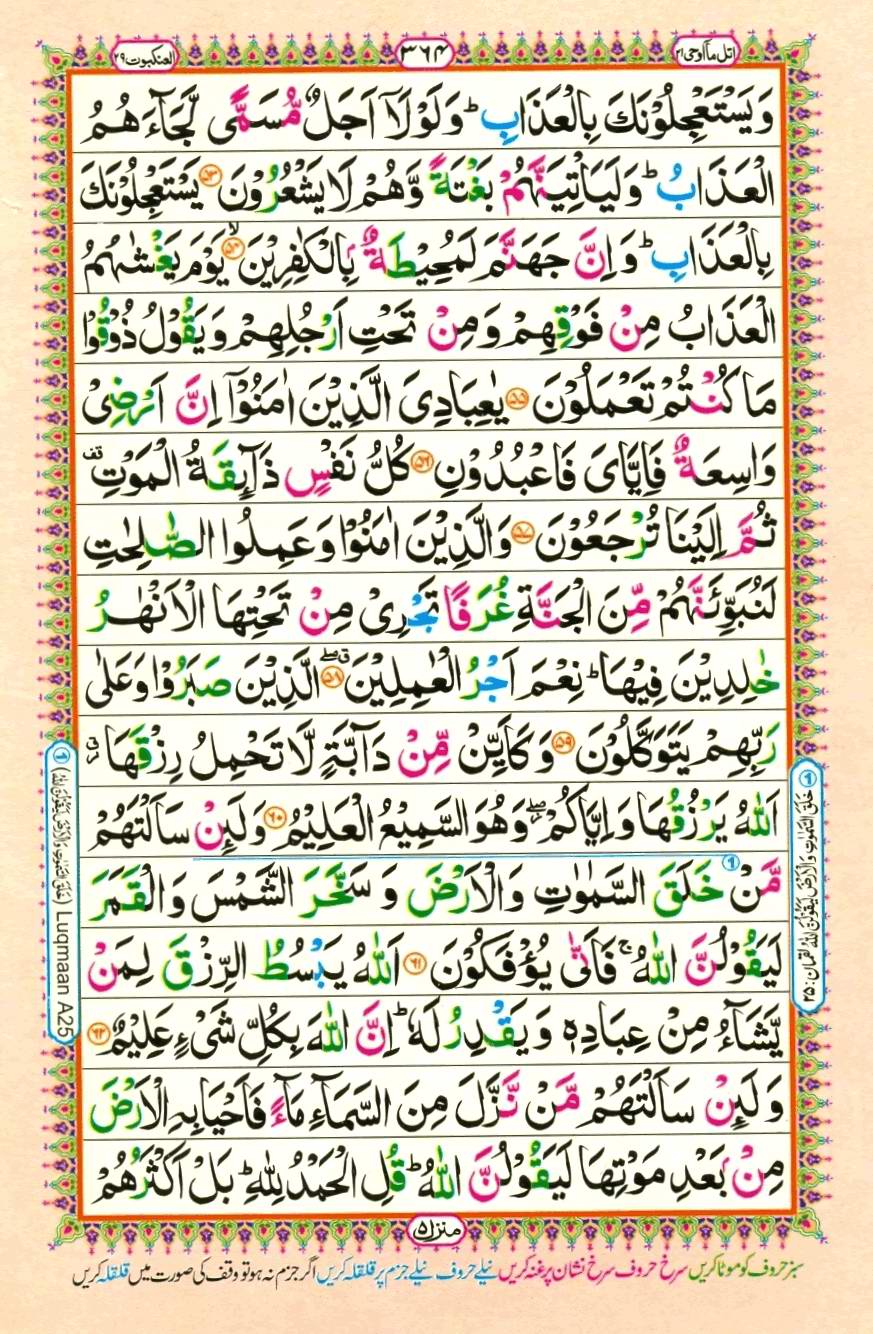 اتل ما اوحی ۲۱
۳۶۴
العنکبوت ۲۹
وَيَسْتَعْجِلُوْنَكَ بِالْعَذَابِ ؕ وَلَوْلَاۤ اَجَلٌ مُّسَمًّی لَّجَآءَهُمُ
الْعَذَابُ ؕ وَلَيَاْتِيَنَّهُمْ بَغْتَةً وَّهُمْ لَا يَشْعُرُوْنَ ۵۳ يَسْتَعْجِلُوْنَكَ
بِالْعَذَابِ ؕ وَاِنَّ جَهَنَّمَ لَمُحِيْطَةٌۢ بِالْكٰفِرِيْنَ ۙ۵۴ يَوْمَ يَغْشٰىهُمُ
الْعَذَابُ مِنْ فَوْقِهِمْ وَمِنْ تَحْتِ اَرْجُلِهِمْ وَيَقُوْلُ ذُوْقُوْا
مَا كُنْتُمْ تَعْمَلُوْنَ ۵۵ يٰعِبَادِیَ الَّذِيْنَ اٰمَنُوْۤا اِنَّ اَرْضِیْ
وَاسِعَةٌ فَاِيَّایَ فَاعْبُدُوْنِ ۵۶ كُلُّ نَفْسٍ ذَآئِقَةُ الْمَوْتِ قف
ثُمَّ اِلَيْنَا تُرْجَعُوْنَ ۵۷ وَالَّذِيْنَ اٰمَنُوْا وَعَمِلُوا الصّٰلِحٰتِ
لَنُبَوِّئَنَّهُمْ مِّنَ الْجَنَّةِ غُرَفًا تَجْرِیْ مِنْ تَحْتِهَا الْاَنْهٰرُ
خٰلِدِيْنَ فِيْهَا ؕ نِعْمَ اَجْرُ الْعٰمِلِيْنَ ۵۸ الَّذِيْنَ صَبَرُوْا وَعَلٰی
رَبِّهِمْ يَتَوَكَّلُوْنَ ۵۹ وَكَاَيِّنْ مِّنْ دَآبَّةٍ لَّا تَحْمِلُ رِزْقَهَا
اَللّٰهُ يَرْزُقُهَا وَاِيَّاكُمْ وَهُوَ السَّمِيْعُ الْعَلِيْمُ ۶۰ وَلَئِنْ سَاَلْتَهُمْ
مَّنْ خَلَقَ السَّمٰوٰتِ وَالْاَرْضَ وَسَخَّرَ الشَّمْسَ وَالْقَمَرَ
لَيَقُوْلُنَّ اللّٰهُ ۚ فَاَنّٰی يُؤْفَكُوْنَ ۶۱ اَللّٰهُ يَبْسُطُ الرِّزْقَ لِمَنْ
يَّشَآءُ مِنْ عِبَادِهٖ وَيَقْدِرُ لَهٗ ؕ اِنَّ اللّٰهَ بِكُلِّ شَیْءٍ عَلِيْمٌ ۶۲
وَلَئِنْ سَاَلْتَهُمْ مَّنْ نَّزَّلَ مِنَ السَّمَآءِ مَآءً فَاَحْيَا بِهِ الْاَرْضَ
مِنْۢ بَعْدِ مَوْتِهَا لَيَقُوْلُنَّ اللّٰهُ ؕ قُلِ الْحَمْدُ لِلّٰهِ ؕ بَلْ اَكْثَرُهُمْ
۱ خَلَقَ السَّمٰوٰتِ وَالْاَرْضَ لَيَقُوْلُنَّ اللّٰهُ لقمان : ۲۵
۱ (خَلَقَ السَّمٰوٰتِ وَالْاَرْضَ لَيَقُوْلُنَّ اللّٰهُ) Luqmaan A25
منزل ۵
سبز حروف کو موٹا کریں سرخ حروف سرخ نشان پر غنہ کریں نیلے حروف نیلے جزم پر قلقلہ کریں اگر جزم نہ ہو تو وقف کی صورت میں قلقلہ کریں